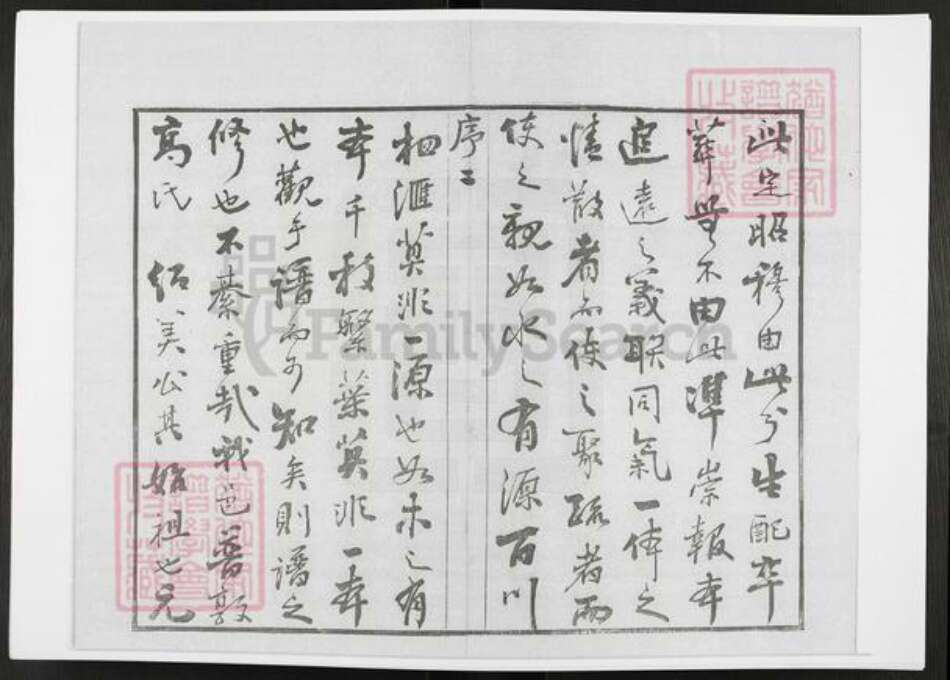 此定昭穆由此分生配卒
葬無不由此準崇報本
追遠之義联同氣一体之
情散者而使之聚疏者而
使之親如水之有源百川
序二
相滙莫非一源也如木之有
本千枝繁葉莫非一本
也觀乎譜而可知矣則譜之
修也不綦重哉我邑普敦
高氏 紹美公其始祖也元
FamilySearch